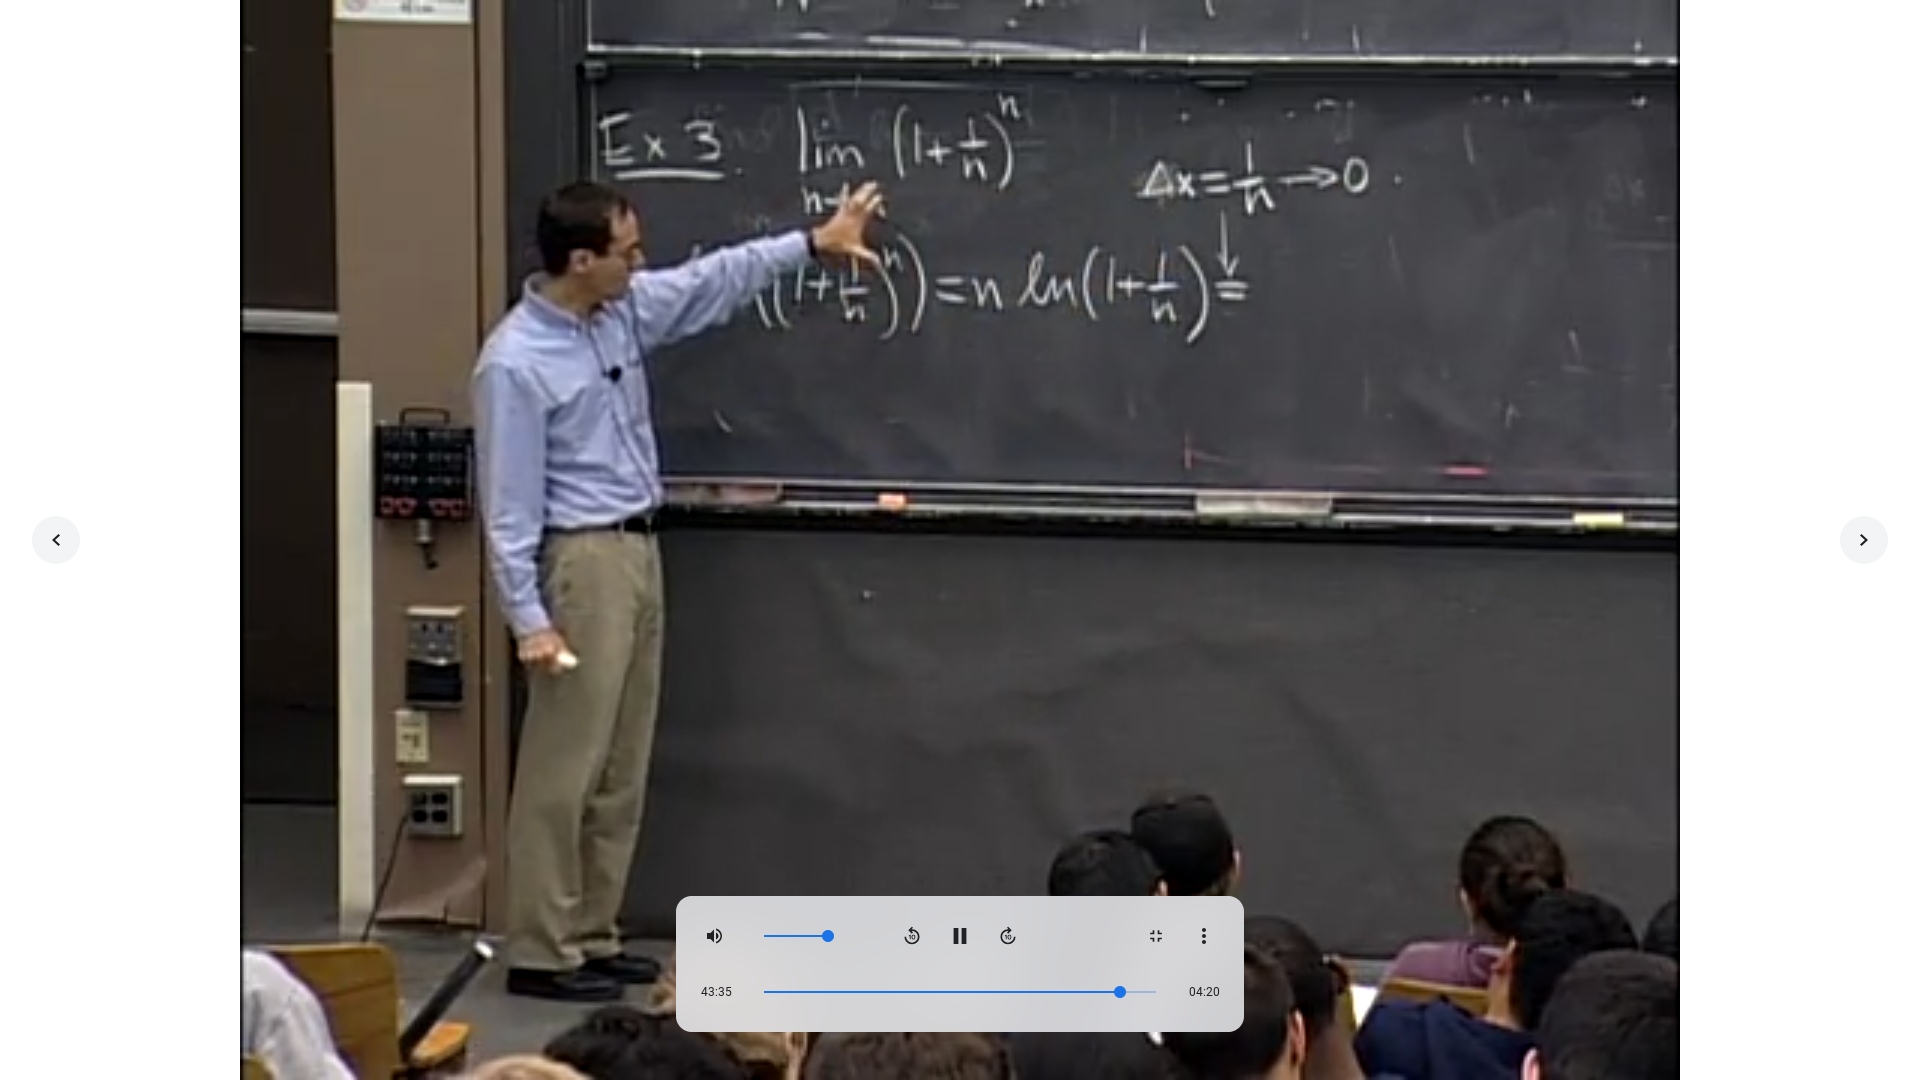 Ex 3. lim (1+1/n)^n Δx=1/n→0.
n→
((1+1/n)^n)=n ln(1+1/n)=
10 10
43:35 04:20